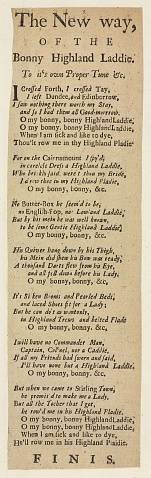 The New way,
OF THE
Bonny Highland Laddie.
To it's own Proper Tune &c.
I Crossed Forth, I crossed Tay,
I left Dundee, and Edinborrow,
I saw nothing there worth my Stay,
and so I bad them all Good-morrow.
O my bonny, bonny HighlandLaddie,
O my bonny, bonny HighlandLaddie,
When I am sick and like to dye,
Thou'lt row me in thy Highland Pladie.
For on the Cairnamount I spy'd,
in careless Dress a Highland Laddie,
Who briskly said, were't thou my Bride,
I'd row thee in my Highland Pladie,
O my bonny, bonny, &c.
No Butter-Box he seem'd to be,
no English-Fop, nor Lowland Laddie,
But by his mein he was well known,
to be some Gentle Highland Laddie,
O my bonny, bonny, &c.
His Quiver hang down by his Thigh,
his Mein did shew his Bow was ready,
A thousand Darts flew from his Eye,
and all fell down before his Lady.
O my bonny, bonny, &c.
Rooms and Pearled Beds,
and laced Shoes fit for a Lady;
But he can do's as wantonly,
in Highland Trews and belted Plade
O my bonny, bonny, &c.
I will have no Commander Man,
Captain, Col'nel, nor a Cadie,
If all my Friends had sworn and said,
I'll have none but a Highland Laddie.
O my bonny, bonny, &c.
But when we came to Stirling Town,
he promis'd to make me a Lady,
But all the Tocher that I got,
he row'd me in his Highland Pladie.
O my bonny, bonny Highland Laddie,
O my bonny, bonny Highland Laddie,
When I am sick and like to dye,
He'll row me in his Highland Plaidie.
FINIS.